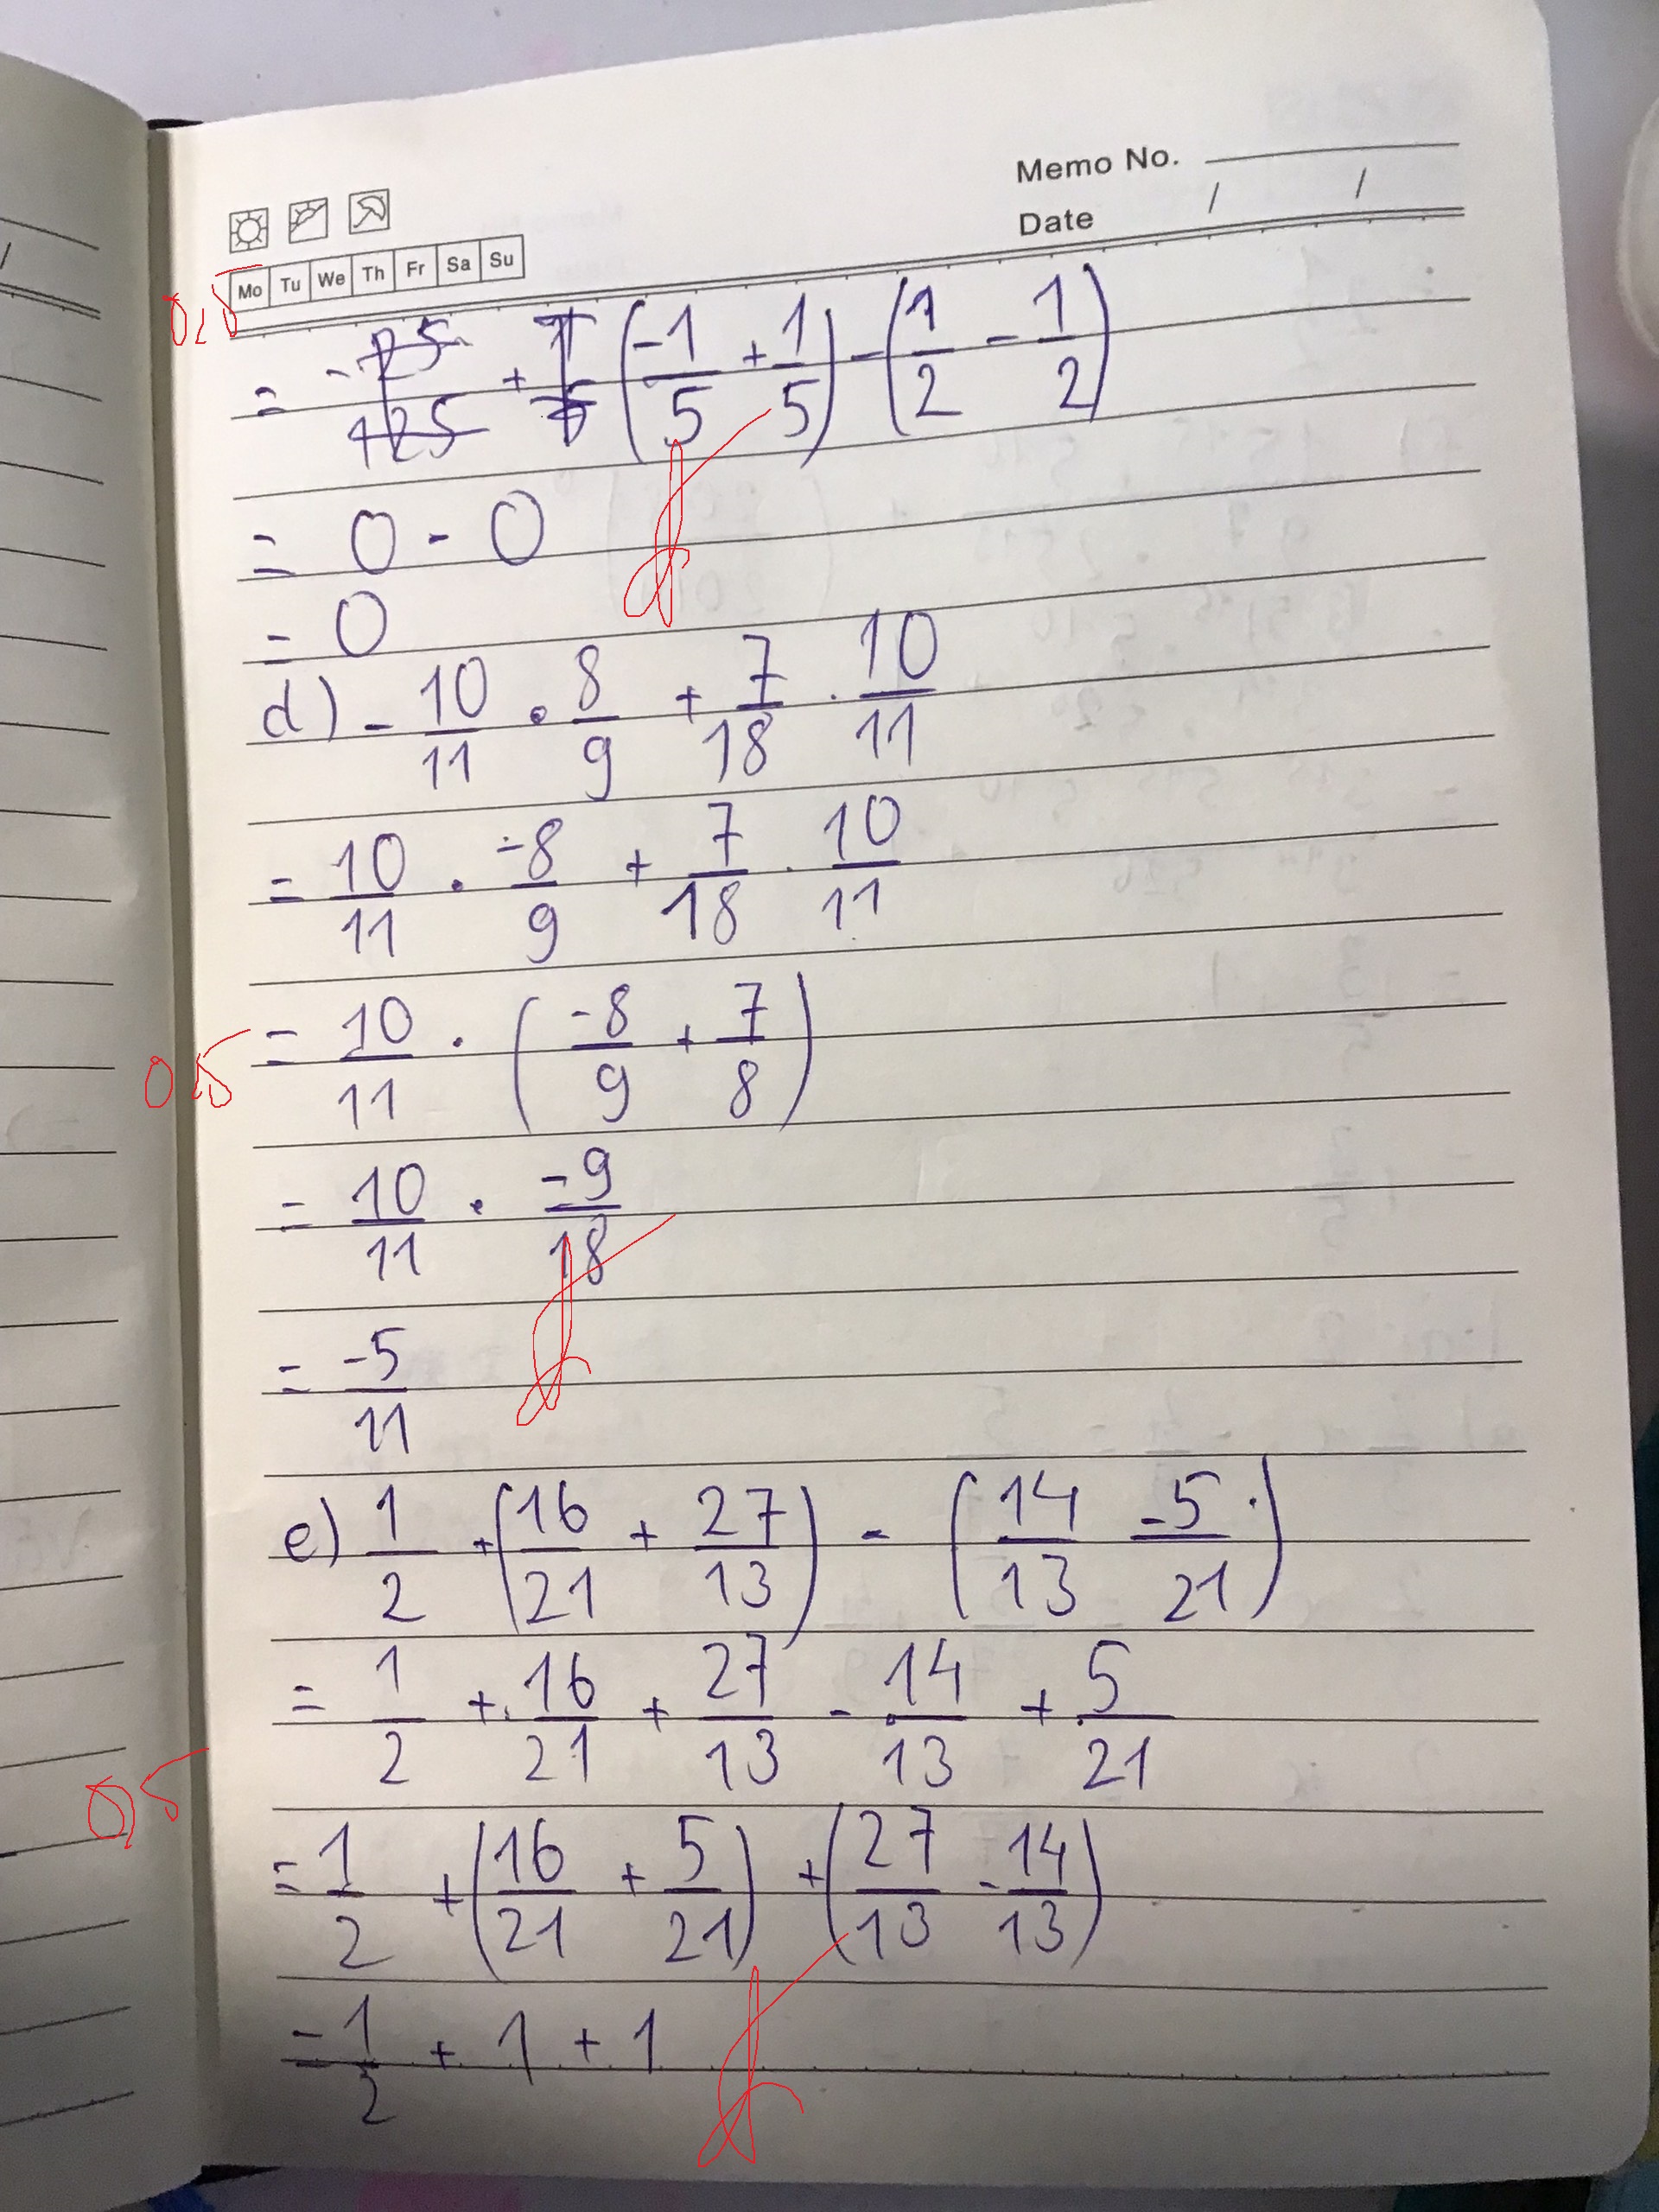 Memo No.
Date / /
Mo Tu We Th Fr Sa Su
0,5
= (-1/5 + 1/5) - (1/2 - 1/2)
= 0 - 0
= 0
d) - 10/11 . 8/9 + 7/18 . 10/11
= 10/11 . -8/9 + 7/18 . 10/11
= 10/11 . (-8/9 + 7/8)
= 10/11 . -9/18
= -5/11
e) 1/2 + (16/21 + 27/13) - (14/13 - 5/21)
= 1/2 + 16/21 + 27/13 - 14/13 + 5/21
0,5
= 1/2 + (16/21 + 5/21) + (27/13 - 14/13)
= 1/2 + 1 + 1